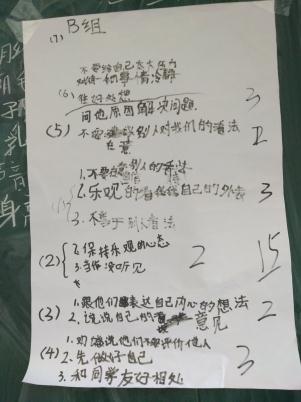 (7) B组
不要给自己太大压力
对待一切事情冷静
(6) 往好处想
问他原因解决问题. 3
(5) 不要 别人对我们的看法 2
在意
1.不要在意别人的看法
2.乐观的看待自己的外表 3
3.不等于别人看法
(2) 2.保持乐观的心态 2 15
3.当作没听见
(3) 1.跟他们表达自己内心的想法 2
2.说说自己的意见
1.劝诫说他们不要评价他人
(4) 2.先做好自己 3
3.和同学友好相处